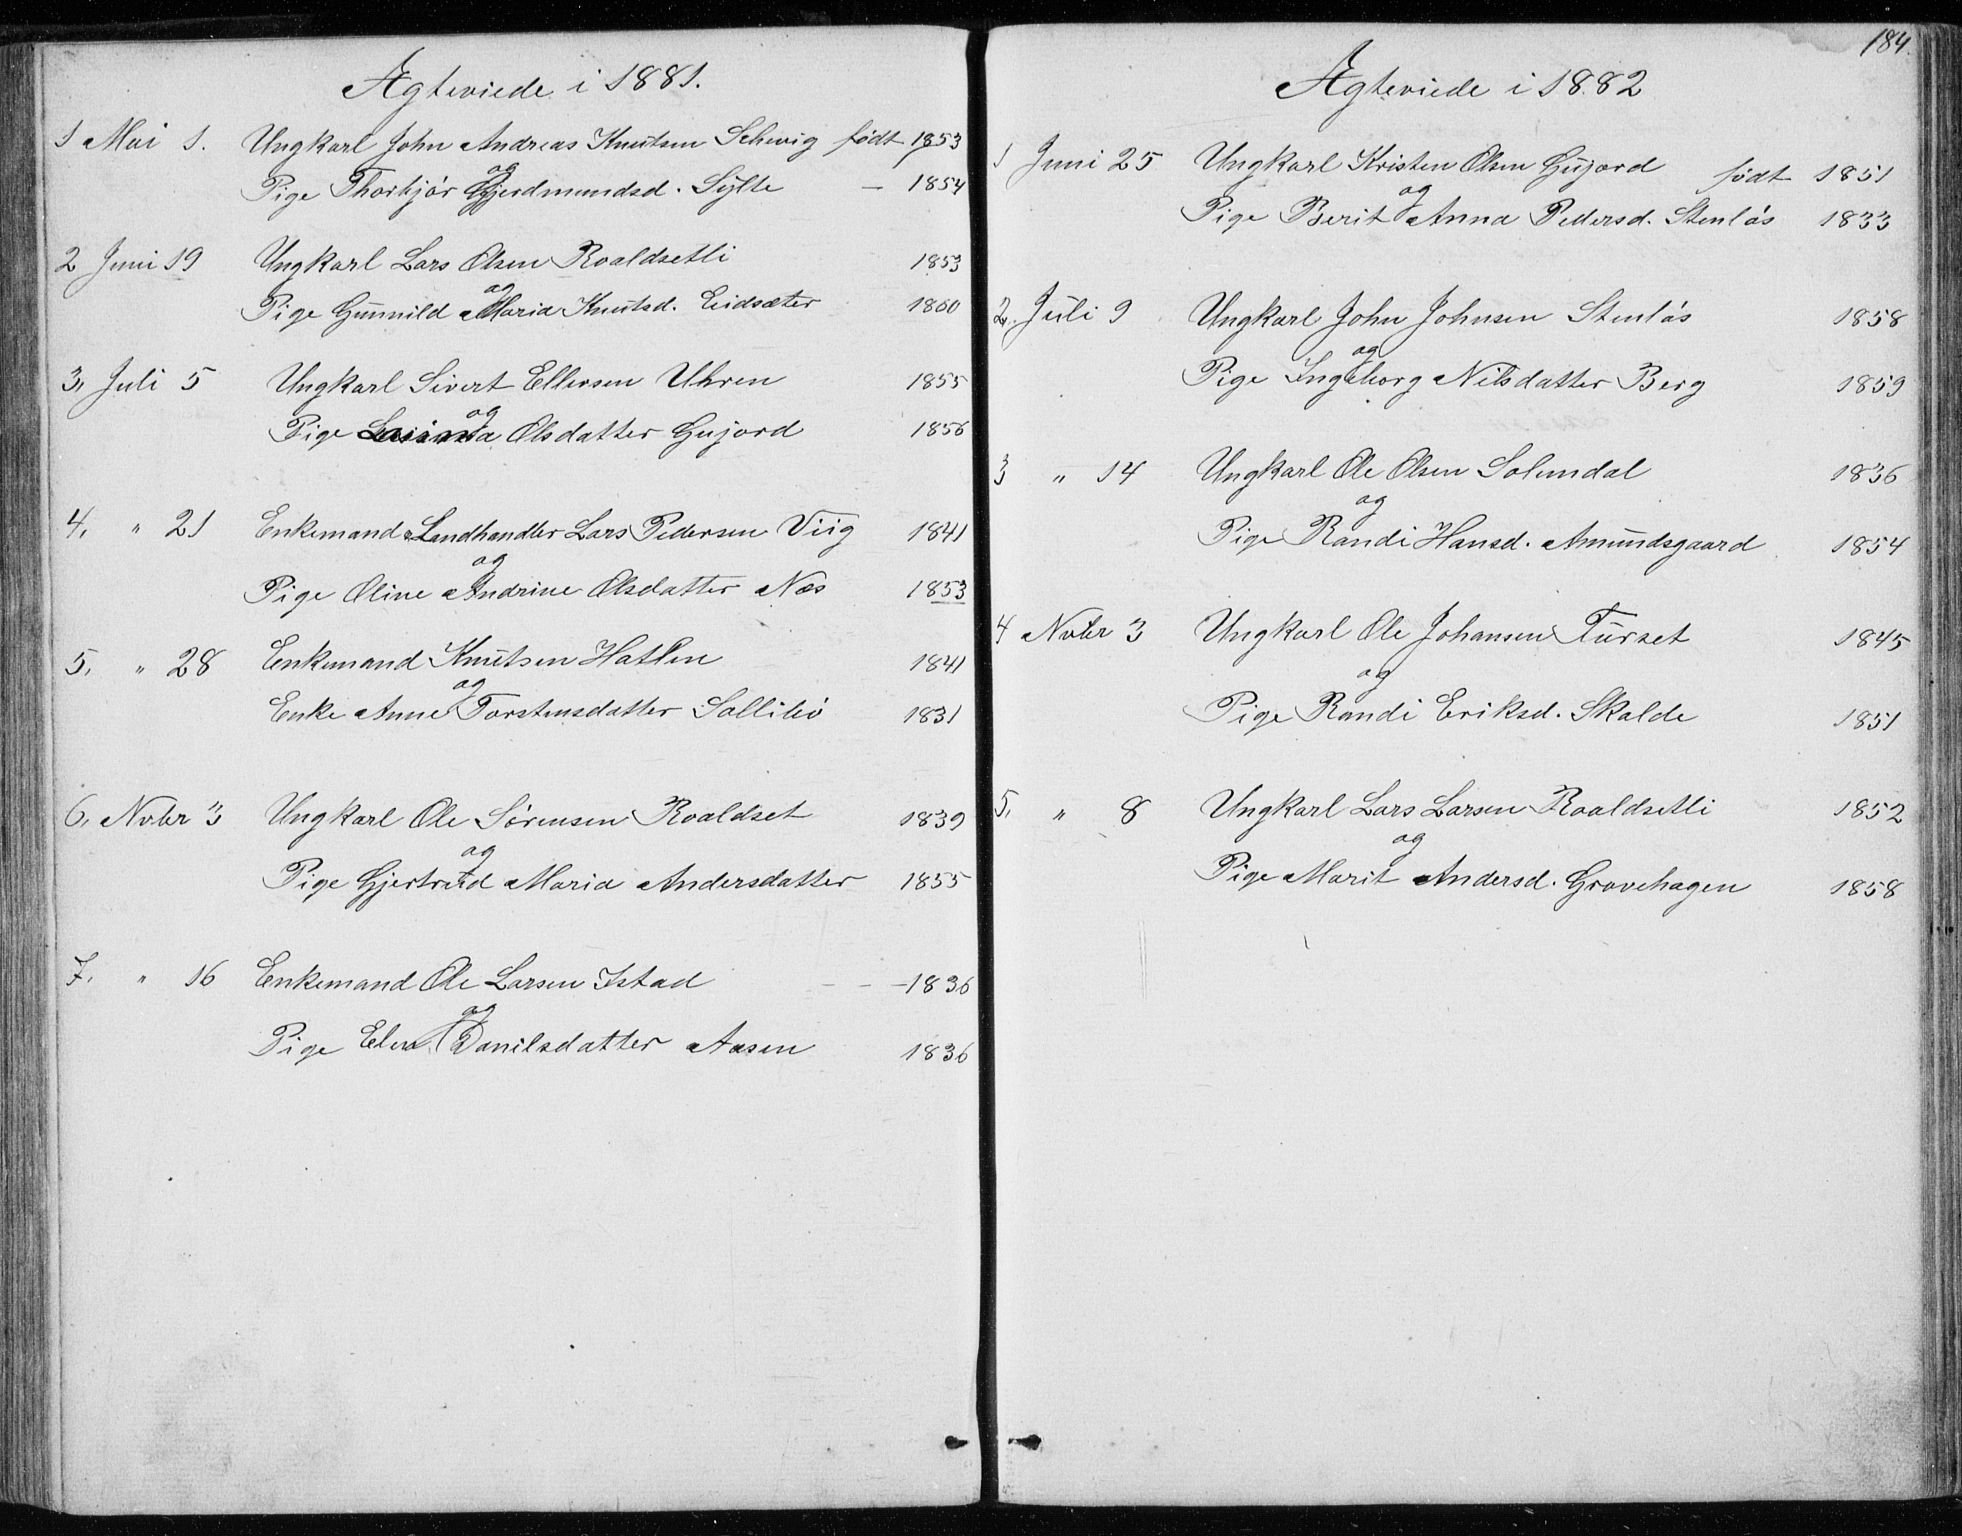 Ægteviede i 1881.
1 Mai 1. Ungkarl John Andreas Knutsen Schevig født 1853
og
Pige Thorbjør Gjerdmundsd. Sylte — 1854
2 Juni 19 Ungkarl Lars Olsen Roaldsetli 1853
og
Pige Gunnild Maria Knutsd. Eidsæter 1860
3, Juli 5 Ungkarl Sivert Ellersen Uhren 1855
og
Pige Olsdatter Gujord 1856
4, " 21 Enkemand & Landhandler Lars Pedersen Viig 1841
og
Pige Oline Andrine Olsdatter Næs 1853
5, " 28 Enkemand Knutsen Hatlen 1841
og
Enke Anne Torstensdatter Sollibø 1831
6, Novbr 3 Ungkarl Ole Sørensen Roaldset 1839
og
Pige Gjertrud Maria Andersdatter 1855
7, " 16 Enkemand Ole Larsen Istad - - -1836
og
Pige Elen Danilsdatter Aasen 1836
184.
Ægteviede i 1882
1 Juni 25 Ungkarl Kristen Olsen Gujord født 1851
og
Pige Berit Anna Pedersd. Stenløs 1833
2. Juli 9 Ungkarl John Johnsen Stenløs 1858
og
Pige Ingeborg Nilsdatter Berg 1859
3 " 14 Ungkarl Ole Olsen Solemdal 1836
og
Pige Randi Hansd. Amundsgaard 1854
4 Novbr 3 Ungkarl Ole Johansen Furset 1845
og
Pige Randi Eriksd. Skalde 1851
5, " 8 Ungkarl Lars Larsen Roaldsetli 1852
og
Pige Marit Andersd. Grovehagen 1858